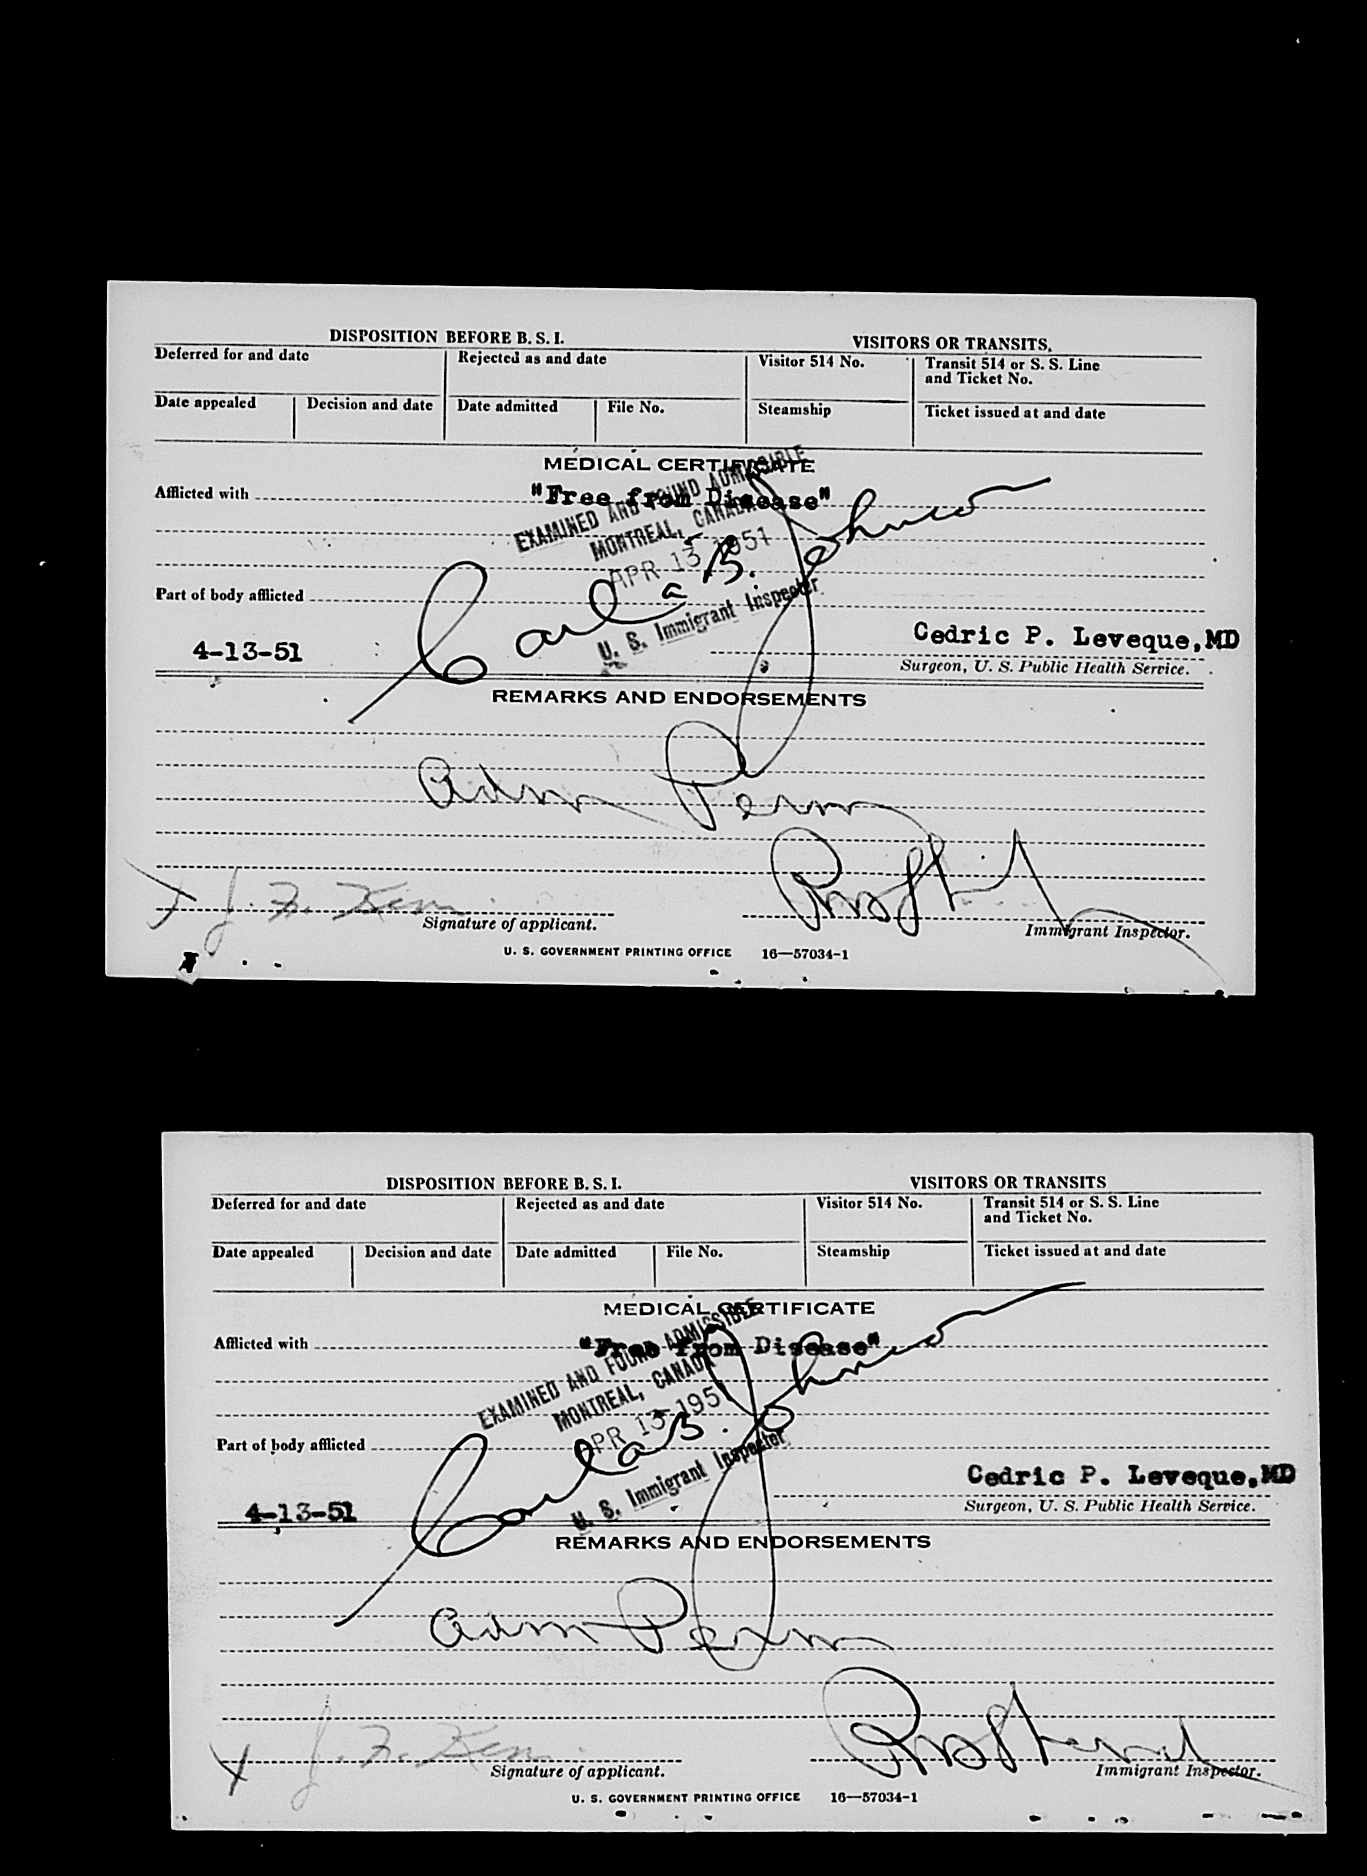 DISPOSITION BEFORE B. S. I.
VISITORS OR TRANSITS.
Deferred for and date
Rejected as and date
Visitor 514 No.
Transit 514 or S. S. Line
and Ticket No.
Date appealed
Decision and date
Date admitted
File No.
Steamship
Ticket issued at and date
MEDICAL CERTIFICATE
Afflicted with "Free from Disease"
EXAMINED AND FOUND ADMISSIBLE
MONTREAL, CANADA
APR 13 1951
Carla B. Johnson
U. S. Immigrant Inspector
Part of body afflicted
4-13-51
Cedric P. Leveque, MD
Surgeon, U. S. Public Health Service.
REMARKS AND ENDORSEMENTS
Adm Perm
x J.
Signature of applicant.
Immigrant Inspector.
U. S. GOVERNMENT PRINTING OFFICE 16—57034-1
DISPOSITION BEFORE B. S. I.
VISITORS OR TRANSITS
Deferred for and date
Rejected as and date
Visitor 514 No.
Transit 514 or S. S. Line
and Ticket No.
Date appealed
Decision and date
Date admitted
File No.
Steamship
Ticket issued at and date
MEDICAL CERTIFICATE
Afflicted with "Free from Disease"
EXAMINED AND FOUND ADMISSIBLE
MONTREAL, CANADA
APR 13 1951
Carla B. Johnson
U. S. Immigrant Inspector
Part of body afflicted
4-13-51
Cedric P. Leveque, MD
Surgeon, U. S. Public Health Service.
REMARKS AND ENDORSEMENTS
Adm Perm
x J.
Signature of applicant.
Immigrant Inspector.
U. S. GOVERNMENT PRINTING OFFICE 16—57034-1